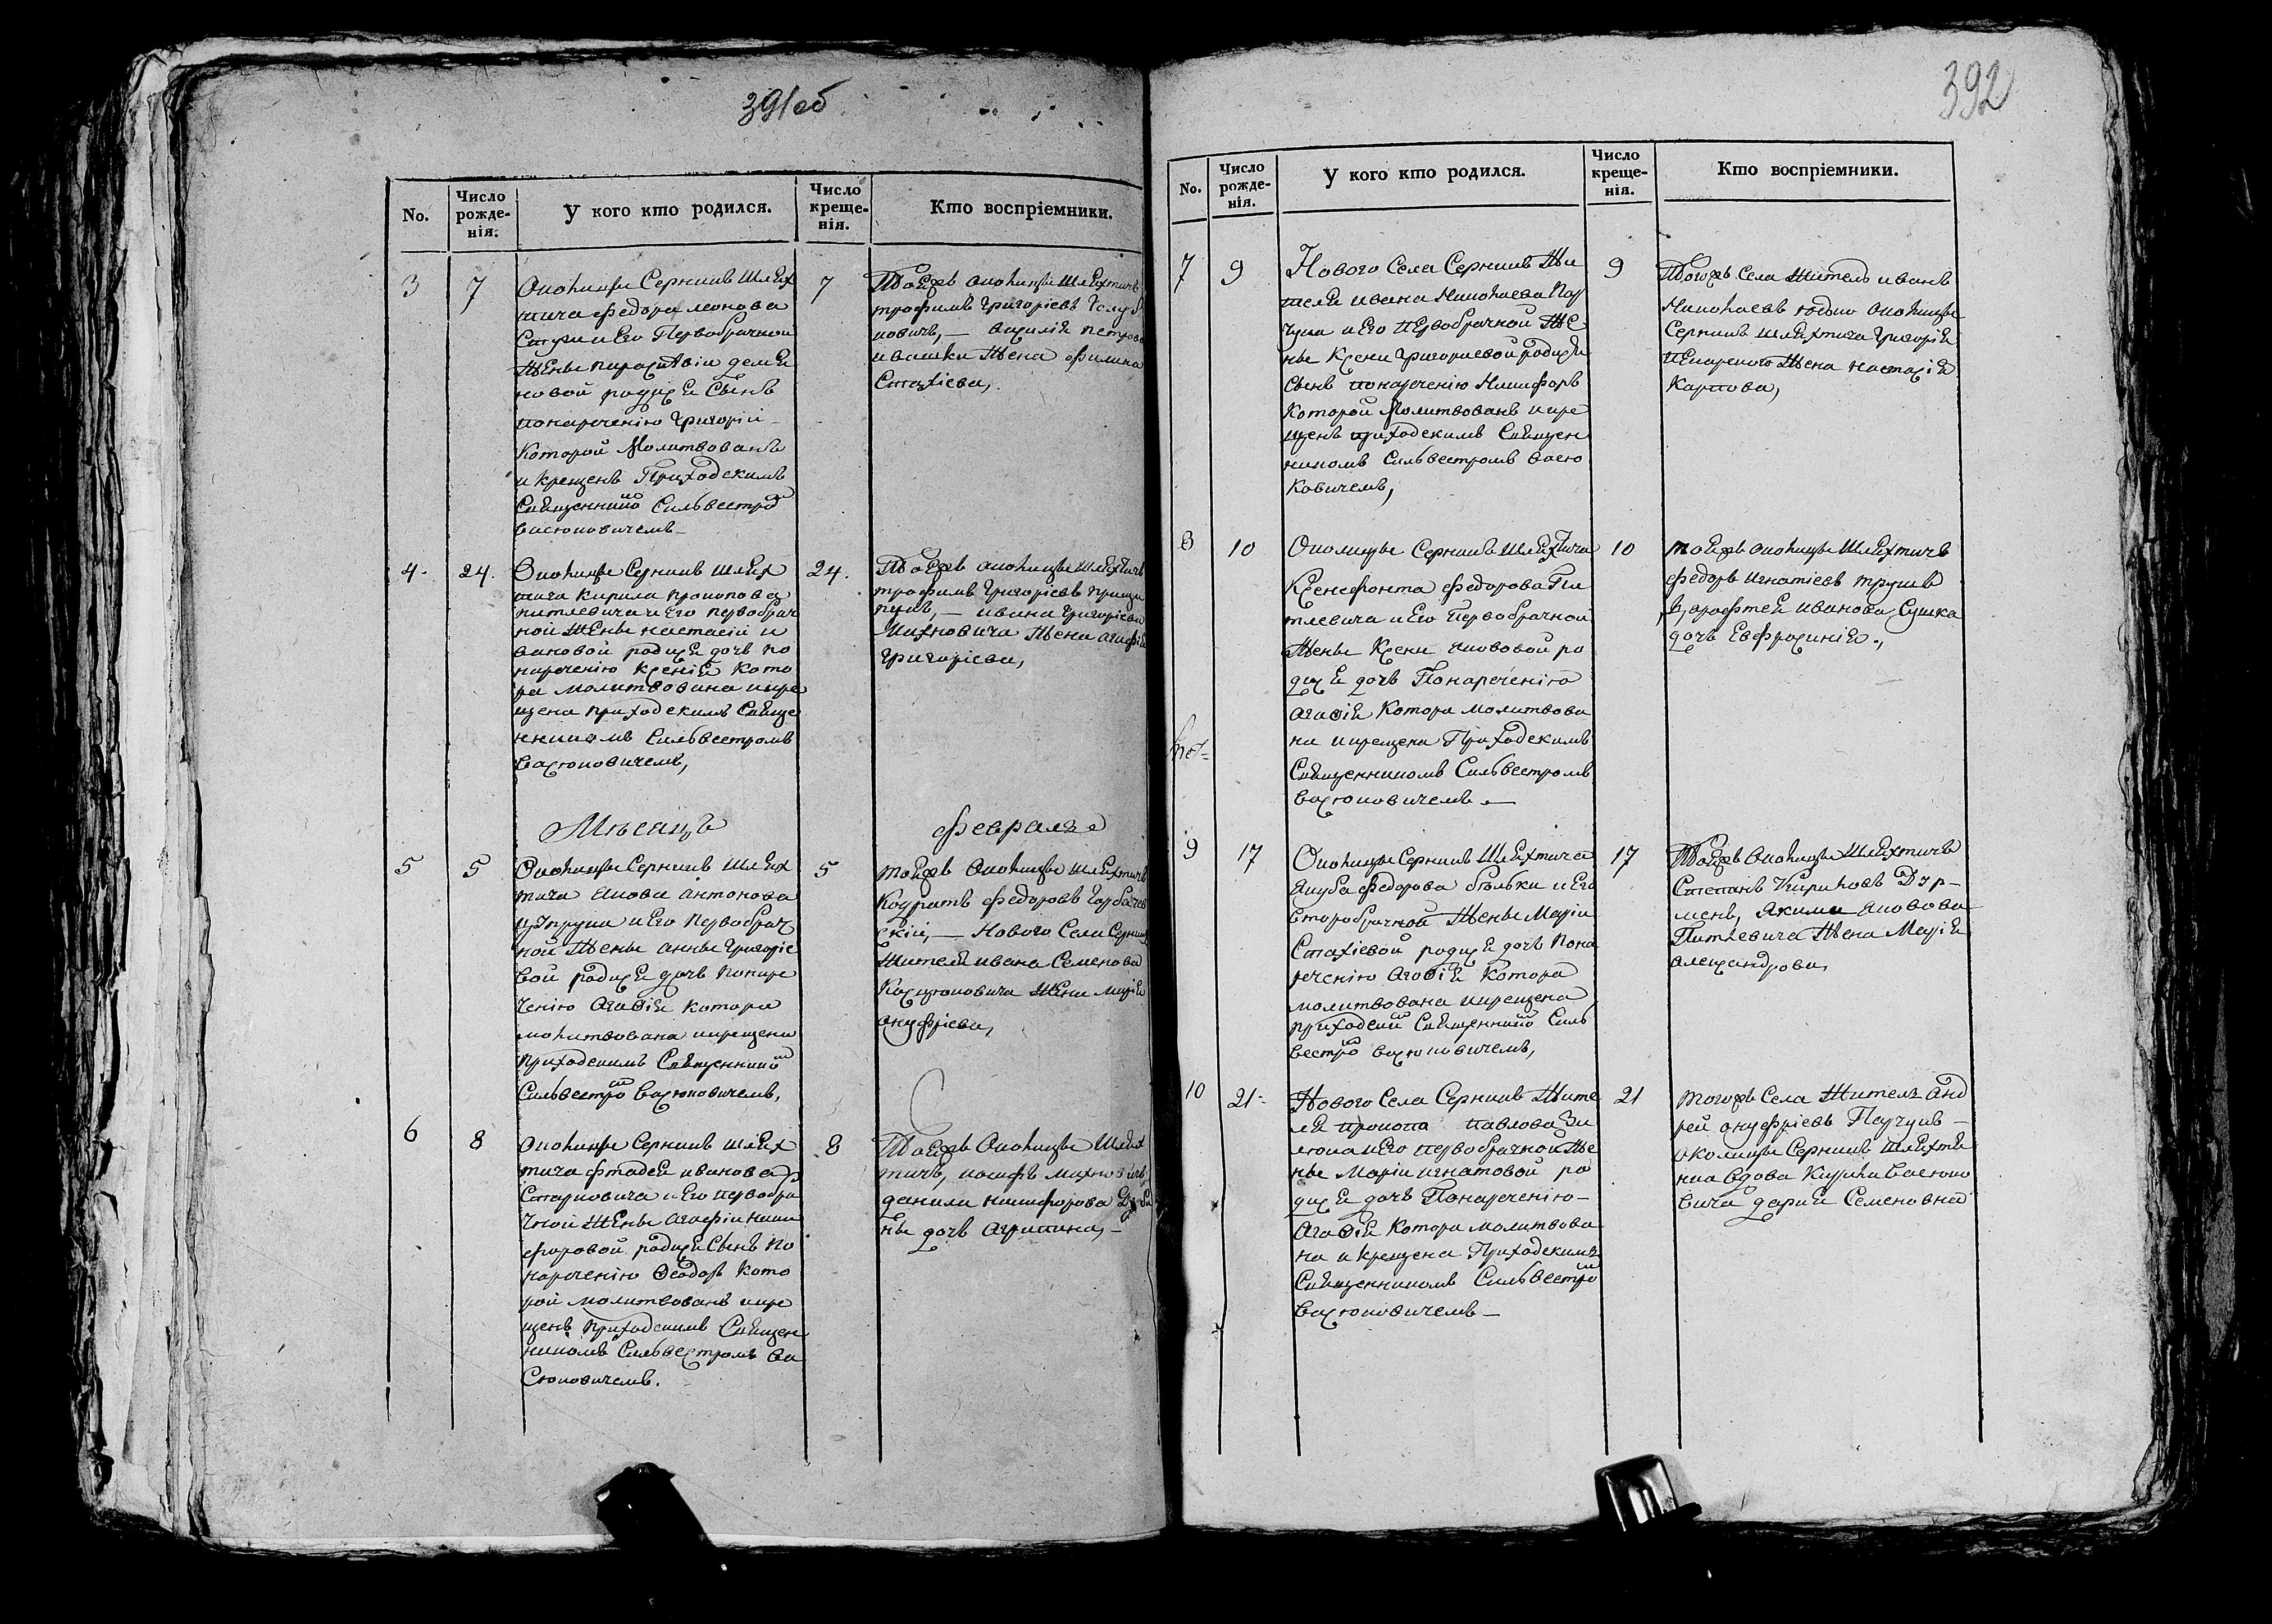 391об
No.
Число рожденія.
У кого кто родился.
Число крещенія.
Кто воспріемники.
3
7
Околицы Серникъ Шлях
тича федора
и Его Первобрачной
Жены параскѣвіи
новой родися Сынъ
понареченію григорій
Которой Молитвованъ
и крещенъ Приходскимъ
Священнико Сильвестро
васюковичемъ
7
Тоейжъ околицы шляхтичь
трофимъ григорієвъ
новичъ, — василія петрова
ивашки жена
Стахіева,
4
24.
Околицы Серникъ шлях
тича Кирила прокопова
питлевича и Его первобрач
ной Жены настасіи и
вановой родися дочь по
нареченію Ксенія Кото
ра молитвована и кре
щена приходскимъ Свяще
нникомъ Сильвестромъ
васюковичемъ,
24.
Тоейжъ околицы шляхтичъ
трофимъ григорієвъ
— ивана григоріева
Михновича жена агафія
григоріева,
Мѣсяцъ
февраль
5
5
Околицы Серникъ Шлях
тича якова антонова
и Его Первобрач
ной Жены анны григоріе
вой родися дочь понаре
ченію Агафія котора
молитвована и крещена
приходскимъ Священнико
Сильвестро васюковичемъ,
5
тоейжъ Околицы шляхтичъ
Кодратъ федоровъ горбачев
скій, — Нового Села Серникъ
Жителя ивана Семенова
жена марія
онуфріева,
6
8
околицы Серникъ шлях
тича фтадея иванова
Старновича и Его первобра
чной Жены агафіи ники
форовой родися Сынъ по
нареченію Феодоръ кото
рой молитвованъ и кре
щенъ приходскимъ Священ
никомъ Сильвестромъ ва
Сюковичемъ.
8
Тоейжъ Околицы Шлях
тичъ, иосифъ михновичъ
данили никифорова
дочь агрипина, —
392
No.
Число рожденія.
У кого кто родился.
Число крещенія.
Кто воспріемники.
7
9
Нового Села Серникъ Жи
теля ивана Николаева Пау
чука и Его первобрачной Же
ны Ксени григориевой родися
Сынъ понареченію Никифоръ
Которой Молитвованъ и кре
щенъ приходскимъ Священ
никомъ Сильвестромъ васю
ковичемъ,
9
Тогожъ Села житель иванъ
Николаевъ околицы
Серникъ шляхтича григорія
жена настасія
Карпова,
8
10
Околицы Серникъ Шляхтича
Ксенефонта федорова Пи
тлевича и Его Первобрачной
Жены Ксени яковой ро
дися дочь Понареченію
агафія Котора молитвова
на и крещена Приходскимъ
Священникомъ Сильвестромъ
васюковичемъ —
10
тоейжъ околицы шляхтичъ
федоръ игнатієвъ
иванова Сушка
дочь Евфросинія,
9
17
Околицы Серникъ Шляхтича
якуба федорова бѣльки и Его
второбрачной Жены Маріи
Стахіевой родися дочь Пона
реченію Агафія Котора
молитвована и крещена
приходски Священнико Силь
вестро васюковичемъ,
17
Тоейжъ Околицы Шляхтичъ
Степанъ Кириловъ
Якима Якова
Питлевича Жена Марія
александрова,
10
21
Нового Села Серникъ Жите
ля прокопа павлова
и Его первобрачной Же
ны Маріи игнатовой ро
дися дочь Понареченію —
агафія Котора молитвова
на и крещена Приходскимъ
Священникомъ Сильвестро
васюковичемъ —
21
тогожъ Села Житель Анд
рей онуфріевъ Паучукъ —
околицы Серникъ шляхтя
нка вдова Кирила Васюко
вича дарія Семеновна